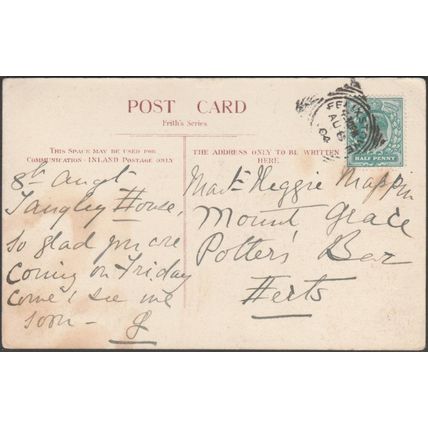 POST CARD
Frith's Series
THIS SPACE MAY BE USED FOR
COMMUNICATION - INLAND POSTAGE ONLY
THE ADDRESS ONLY TO BE WRITTEN
HERE.
HALF PENNY
AU 8
04
8th Augt
Tangley House,
so glad you are
coming on Friday
come & see me
soon -
Reggie Mappin
Mount Grace
Potters' Bar
Herts